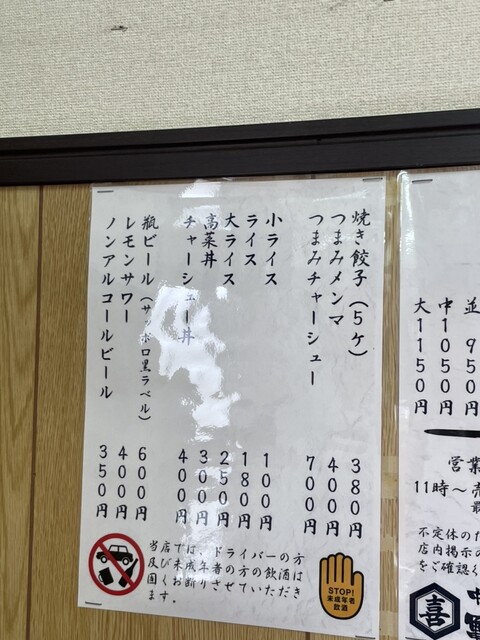 焼き餃子(5ケ) 380円
つまみメンマ 400円
つまみチャーシュー 700円
小ライス 100円
ライス 180円
大ライス 250円
高菜丼 300円
チャーシュー丼 400円
瓶ビール(サッポロ黒ラベル) 600円
レモンサワー 400円
ノンアルコールビール 350円
当店では、ドライバーの方
及び未成年者の方の飲酒は
固くお断りさせていただき
ます。
STOP!
未成年者
飲酒
並 950円
中 1050円
大 1150円
営業
11時～売
最
不定休のた
店内掲示の
をご確認く
喜
中